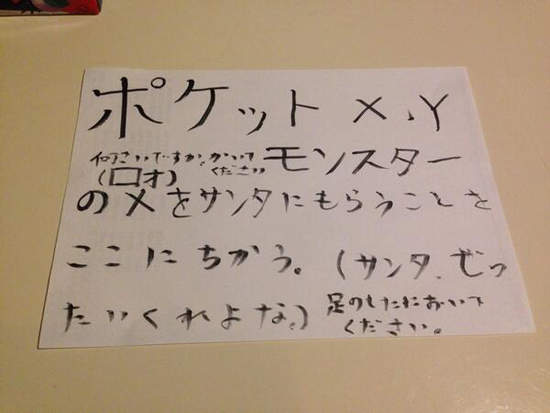 ポケット X、Y
何さいですか、かいて
ください
(口才)
モンスター
のXをサンタにもらうことを
ここにちかう。(サンタ、ぜっ
たいくれよな。)
足のしたにおいて
ください。